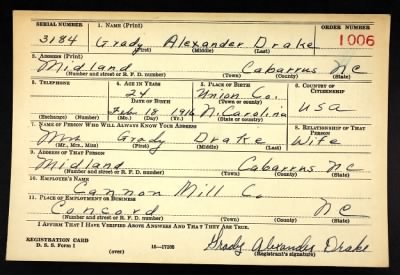 SERIAL NUMBER 1. NAME (Print) ORDER NUMBER
3184 Grady Alexander Drake 1006
(First) (Middle) (Last)
2. ADDRESS (Print)
Midland Cabarrus NC
(Number and street or R. F. D. number) (Town) (County) (State)
3. TELEPHONE 4. AGE IN YEARS 5. PLACE OF BIRTH 6. COUNTRY OF CITIZENSHIP
24 Union Co.
DATE OF BIRTH (Town or county)
Feb. 18, 1916 N. Carolina USA
(Exchange) (Number) (Mo.) (Day) (Yr.) (State or country)
7. NAME OF PERSON WHO WILL ALWAYS KNOW YOUR ADDRESS 8. RELATIONSHIP OF THAT PERSON
Mrs Grady Drake Wife
(Mr., Mrs., Miss) (First) (Middle) (Last)
9. ADDRESS OF THAT PERSON
Midland Cabarrus NC
(Number and street or R. F. D. number) (Town) (County) (State)
10. EMPLOYER'S NAME
Cannon Mill Co.
11. PLACE OF EMPLOYMENT OR BUSINESS
Concord NC
(Number and street or R. F. D. number) (Town) (County) (State)
I AFFIRM THAT I HAVE VERIFIED ABOVE ANSWERS AND THAT THEY ARE TRUE.
REGISTRATION CARD
D. S. S. Form 1 (over) 16—17105 Grady Alexander Drake
(Registrant's signature)